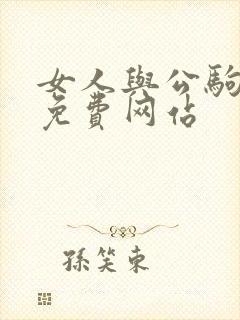 女人與公駒
免費网佔
孫笑東